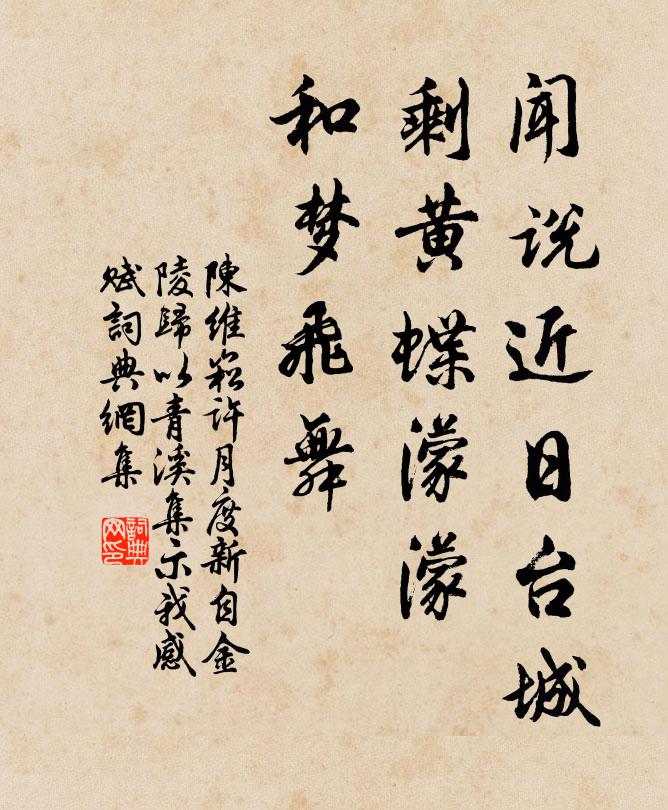 闻说近日台城
剩黄蝶濛濛
和梦飛舞
陳维崧許月度新自金
陵歸以青溪集示我感
赋詞典網集
詞典网印